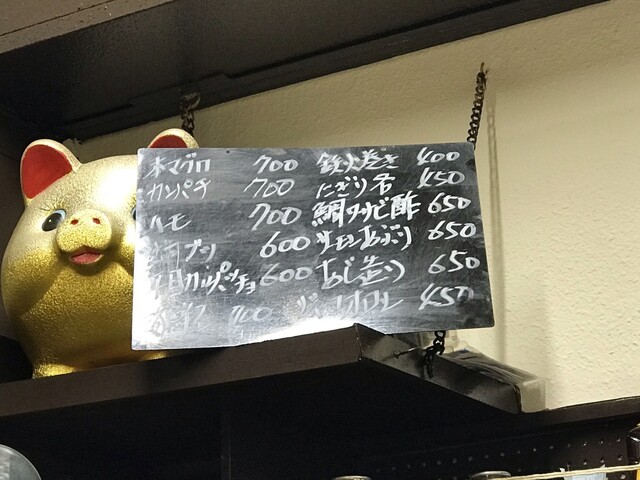 本マグロ 700
カンパチ 700
ハモ 700
ブリ 600
カルパッチョ 600
鉄火巻き 400
にぎり 450
鯛ワサビ酢 650
サーモンあぶり 650
あじ造り 650
450